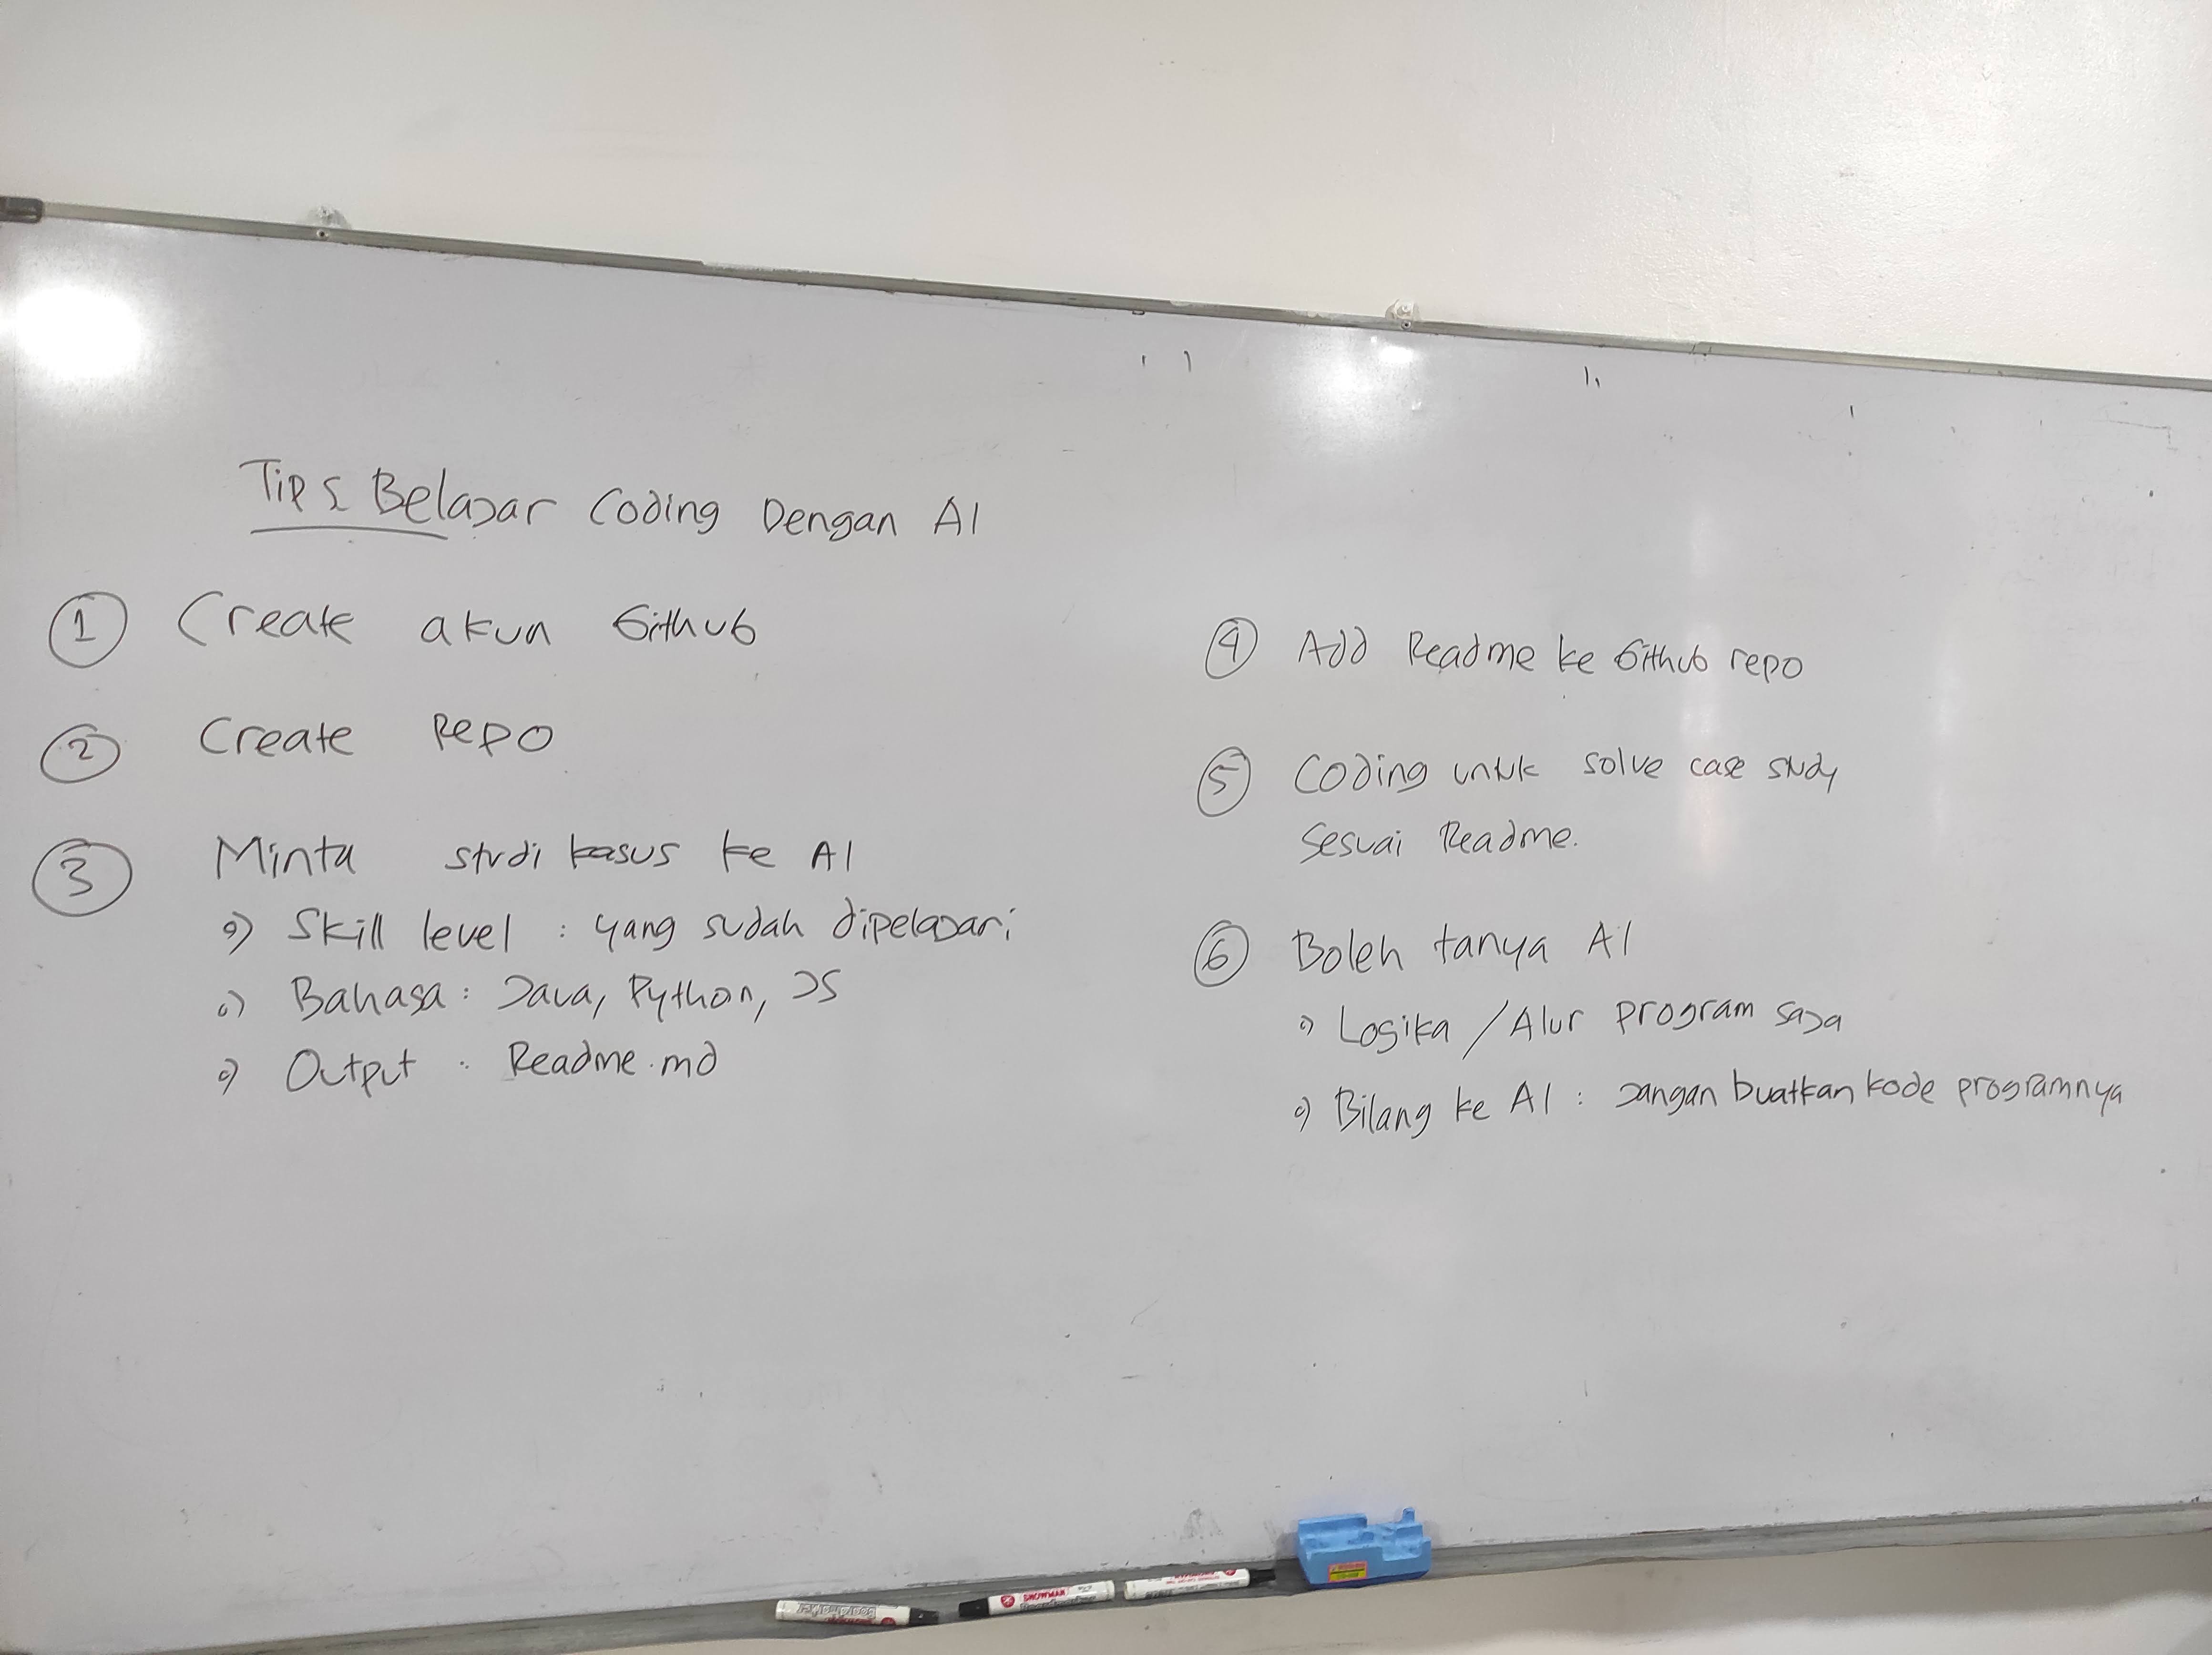 Tips Belajar Coding Dengan AI
1 Create akun Github
2 Create Repo
3 Minta studi kasus ke AI
o) Skill level : yang sudah dipelajari
o) Bahasa : Java, Python, JS
o) Output : Readme.md
4 Add Readme ke Github repo
5 Coding untuk solve case study
sesuai Readme.
6 Boleh tanya AI
o) Logika / Alur program saja
o) Bilang ke AI : Jangan buatkan kode programnya
SNOWMAN